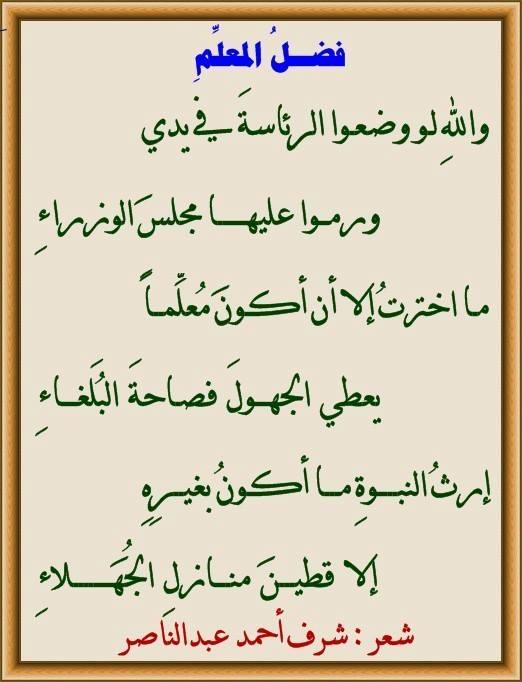 فضــلُ المعلِّمِ
واللهِ لو وضعوا الرئاسةَ في يدي
ورمـوا عليهـــا مجلسَ الوزراءِ
ما اخترتُ إلا أن أكـونَ مُعلِّمـاً
يعطي الجهـولَ فصاحةَ البُلَغـاءِ
إرثُ النبـوةِ مـا أكـونُ بغيـرِهِ
إلا قطيـنَ منـازلِ الجُهَــــلاءِ
شعر : شرف أحمد عبدالناصر